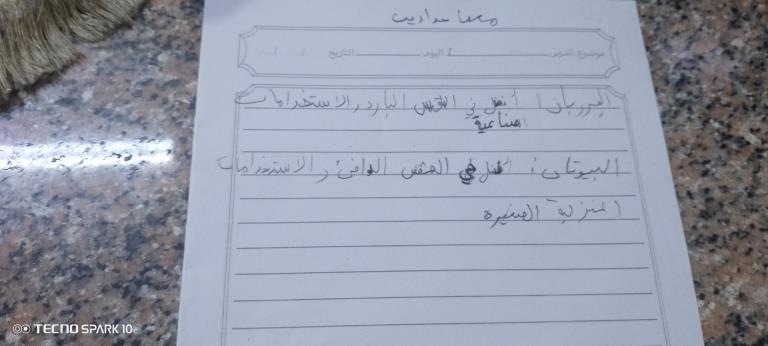 معا حداديب
موضوع الدرس / اليوم التاريخ / /
البوربان : أفضل في الطقس البارد والاستخدامات
الصناعية
البيوتان : أفضل في الطقس الدافئ والاستخدامات
المنزلية الصغيره
TECNO SPARK 10C